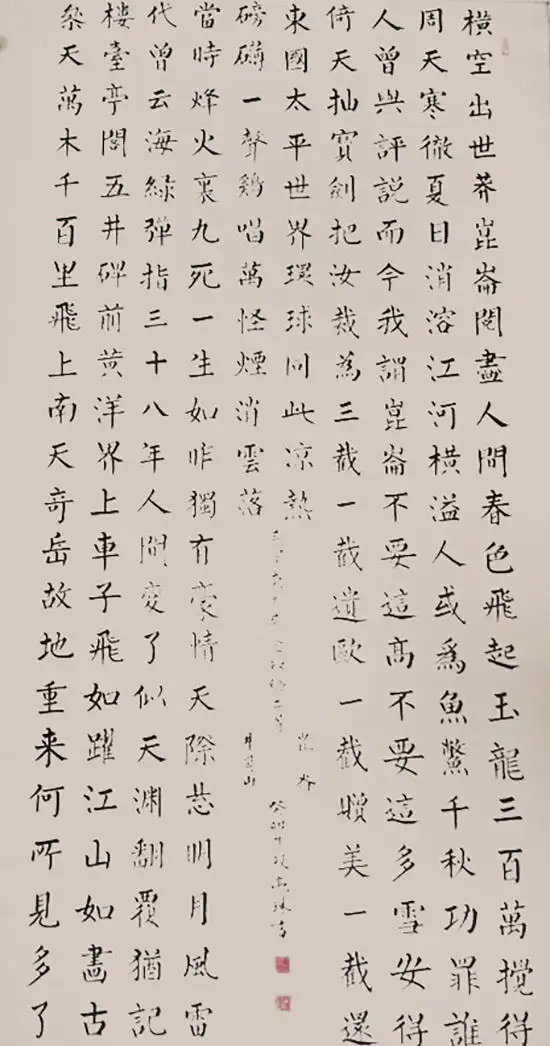 橫空出世莽崑崙閱盡人間春色飛起玉龍三百萬攪得
周天寒徹夏日消溶江河橫溢人或爲魚鱉千秋功罪誰
人曾與評說而今我謂崑崙不要這高不要這多雪安得
倚天抽寶劍把汝裁為三截一截遺歐一截贈美一截還
東國太平世界環球同此凉熱
崑崙
井岡山
癸卯
參天萬木千百里飛上南天奇岳故地重来何所見多了
樓臺亭閣五井碑前黄洋界上車子飛如躍江山如畵古
代曾云海緑彈指三十八年人間變了似天淵翻覆猶記
當時烽火裏九死一生如昨獨有豪情天際悬明月風雷
磅礴一聲鷄唱萬怪煙消雲落